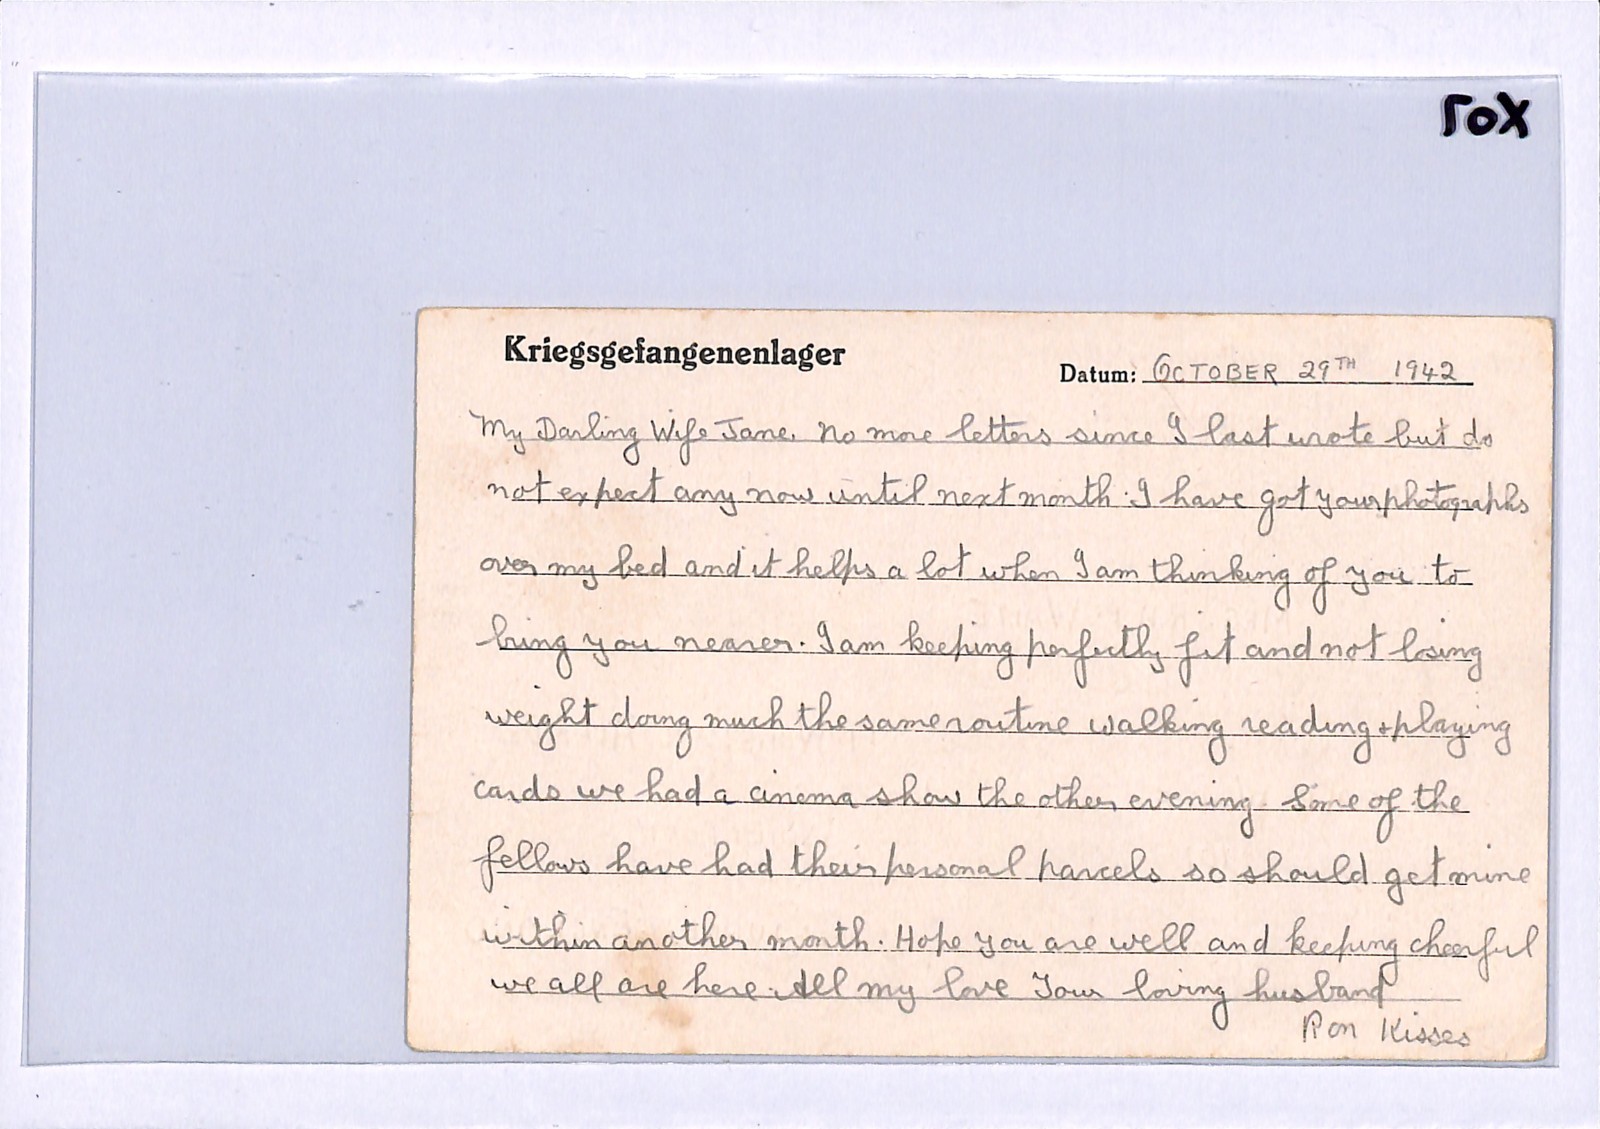 rox
Kriegsgefangenenlager
Datum: OCTOBER 29TH 1942
My Darling Wife Jane. No more letters since I last wrote but do
not expect any now until next month. I have got your photographs
over my bed and it helps a lot when I am thinking of you to
bring you nearer. I am keeping perfectly fit and not losing
weight doing much the same routine walking reading + playing
cards we had a cinema show the other evening. Some of the
fellows have had their personal parcels so should get mine
within another month. Hope you are well and keeping cheerful
we all are here. All my love Your loving husband
Ron Kisses